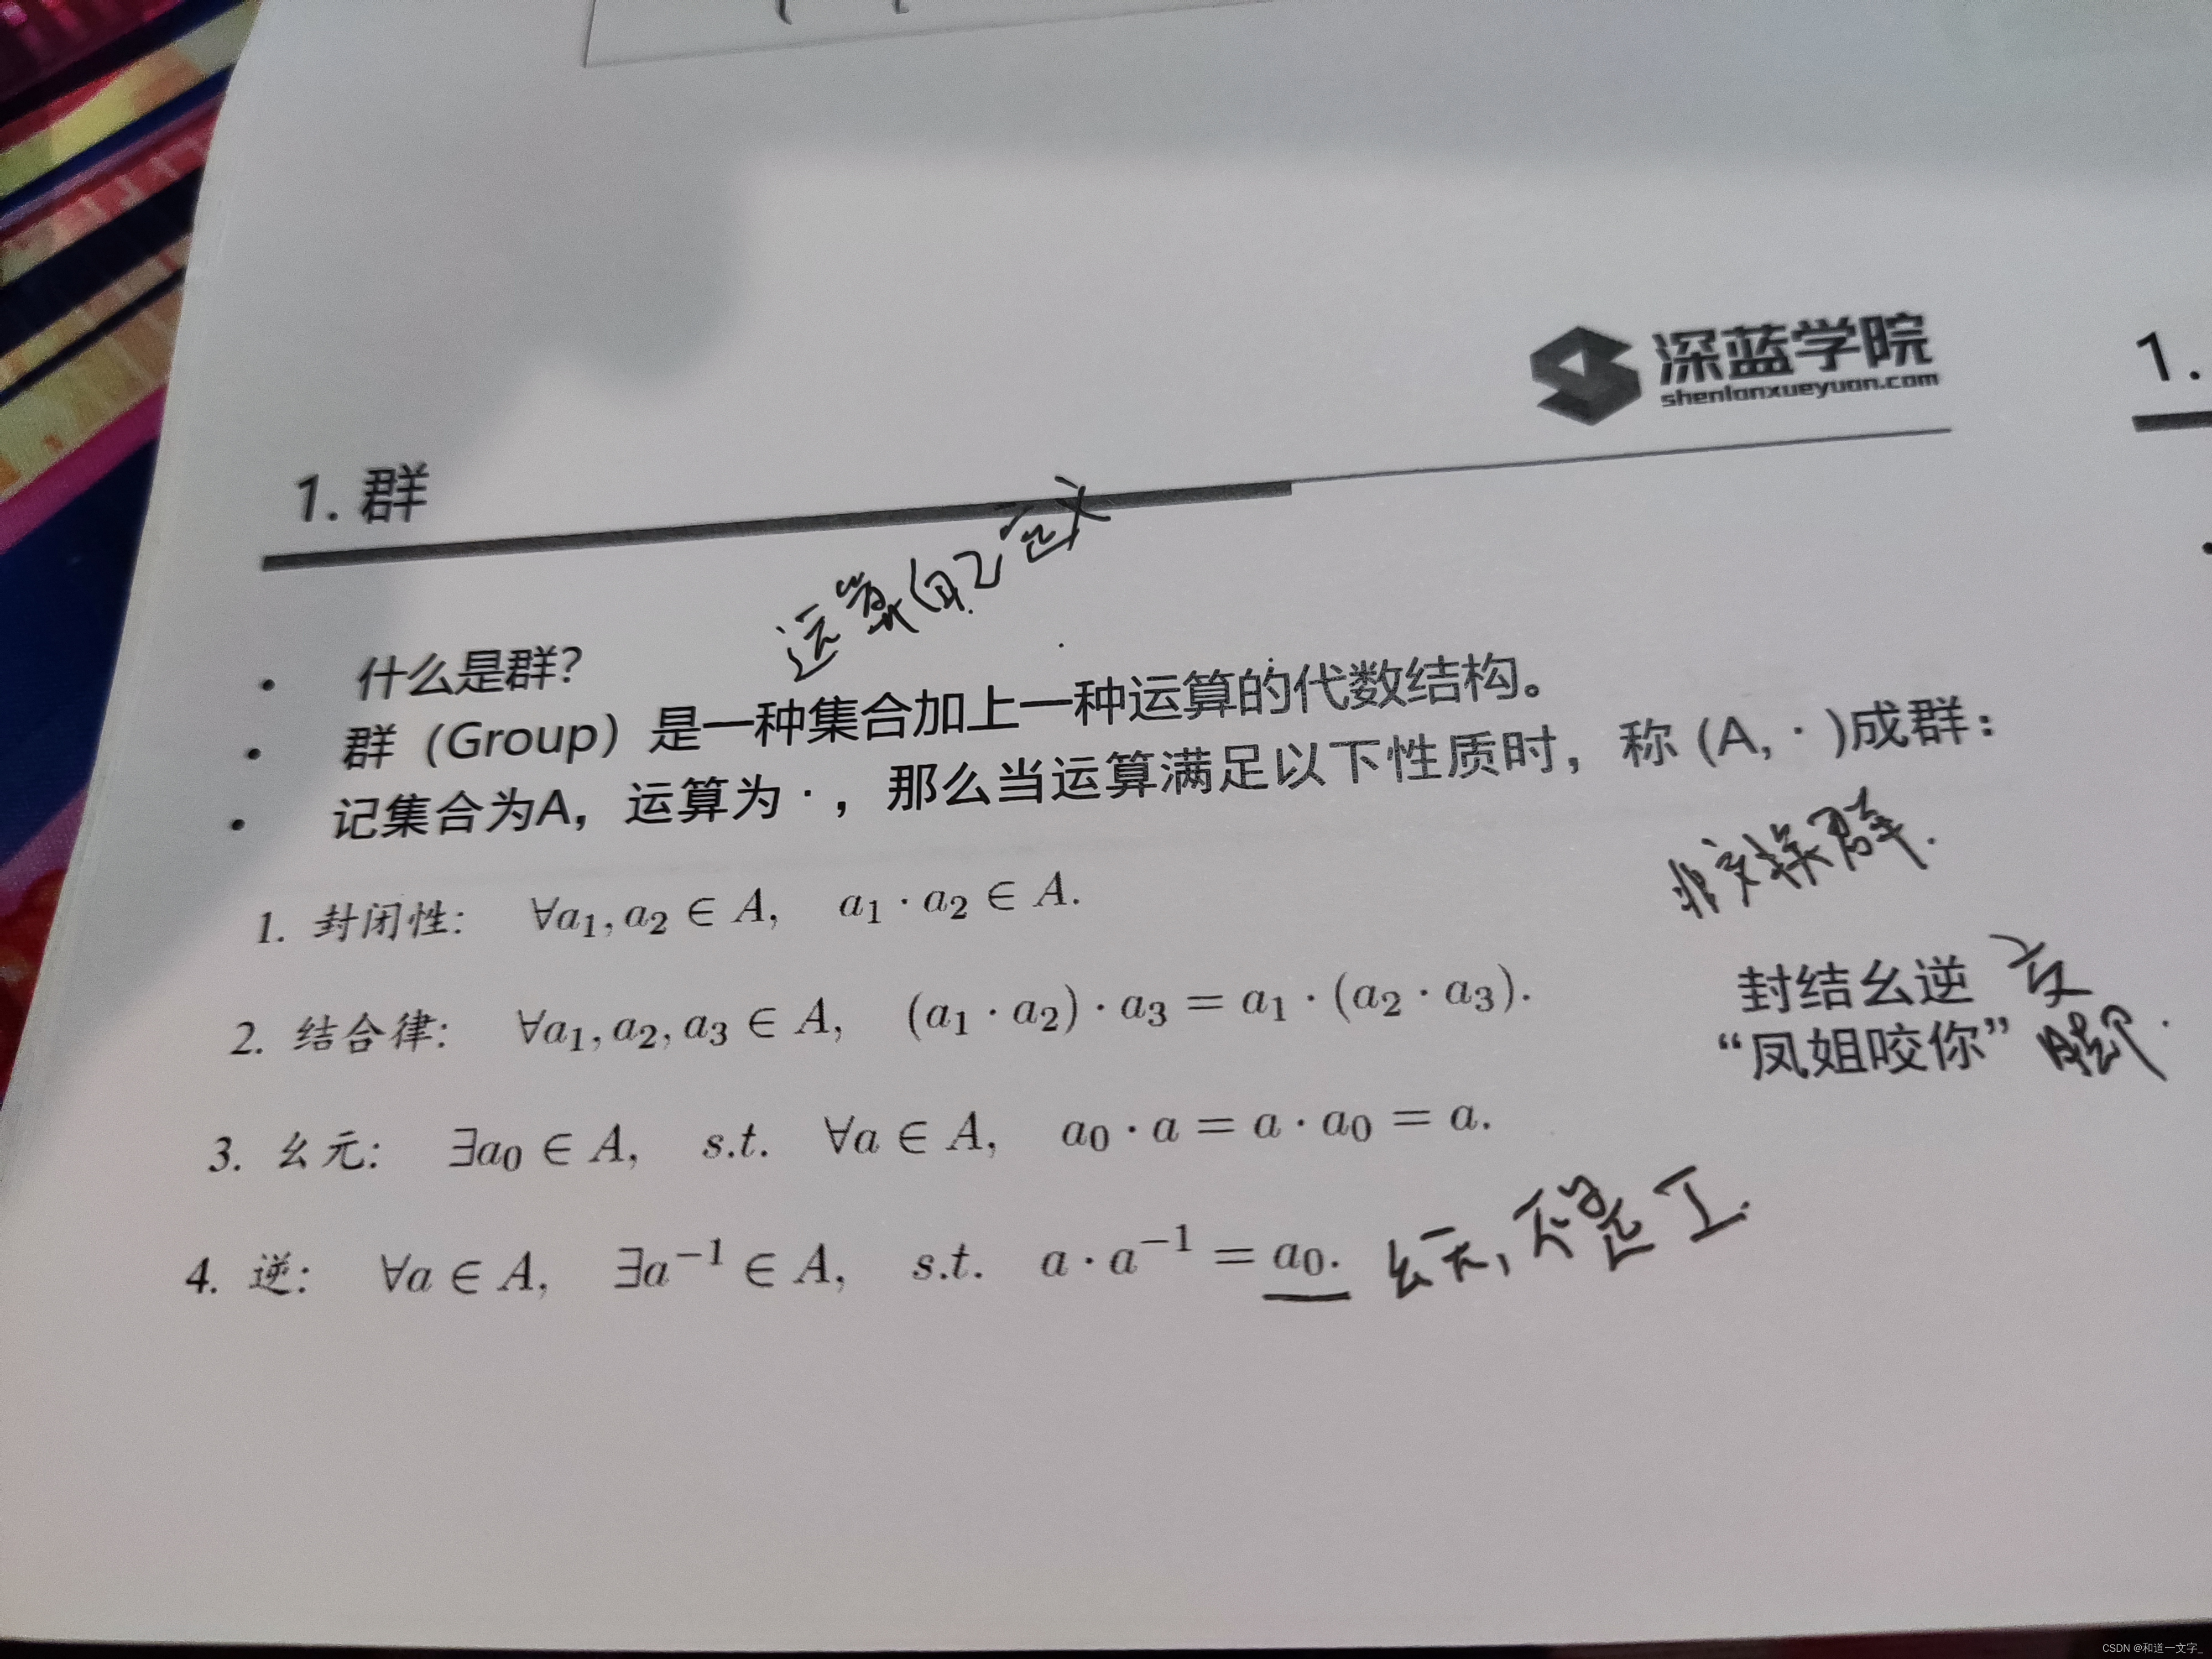 深蓝学院
shenlanxueyuan.com
1.
1. 群
运算(自己定义
• 什么是群?
• 群（Group）是一种集合加上一种运算的代数结构。
• 记集合为A，运算为 · ，那么当运算满足以下性质时，称 (A, · )成群：
非交换群.
1. 封闭性: ∀a₁, a₂ ∈ A, a₁ · a₂ ∈ A.
2. 结合律: ∀a₁, a₂, a₃ ∈ A, (a₁ · a₂) · a₃ = a₁ · (a₂ · a₃).
封结幺逆 交
“凤姐咬你” 脚.
3. 幺元: ∃a₀ ∈ A, s.t. ∀a ∈ A, a₀ · a = a · a₀ = a.
4. 逆: ∀a ∈ A, ∃a⁻¹ ∈ A, s.t. a · a⁻¹ = a₀. 幺元, 不是 I.
CSDN @和道一文字_